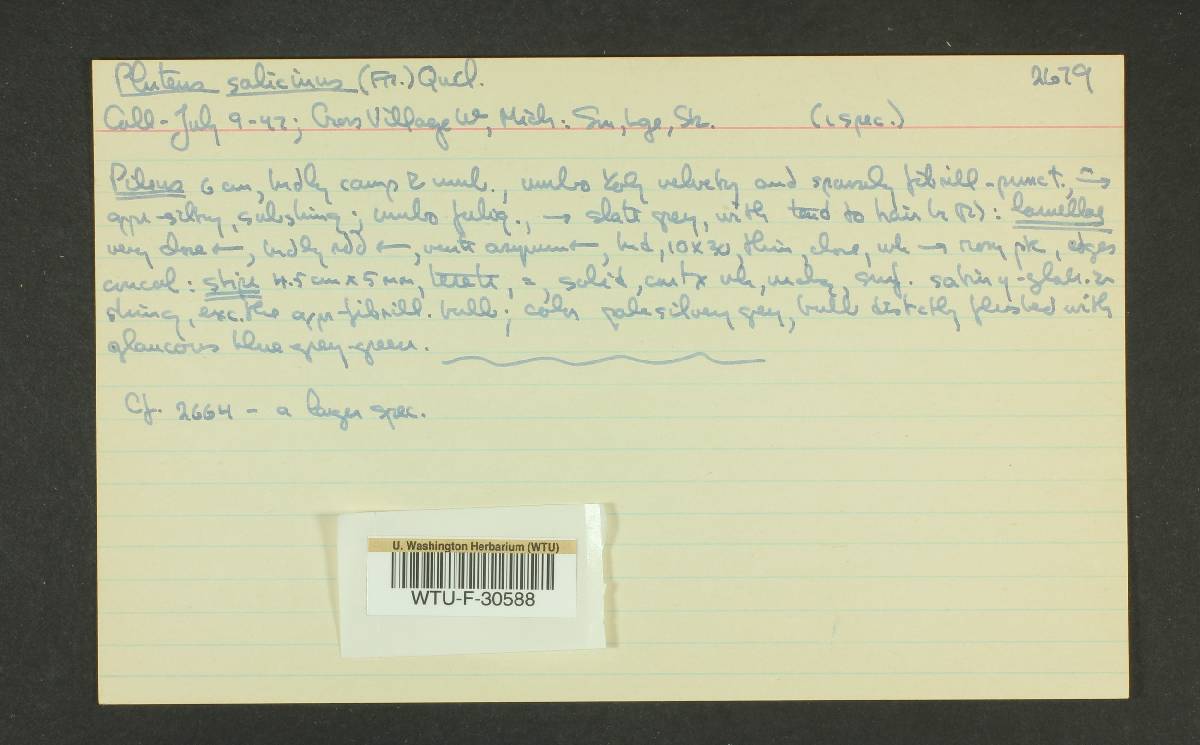 Pluteus salicinus (Fr.) Quél. 2679
Coll - July 9-47; Cross Village W, Mich: Sm, Lge, Stz. (1 spec.)
Pileus 6 cm, brdly camp umb., umbo velvety and sparsely fibrill-punct., →
appr-silky, subshiny; umbo fulig., → slate grey, with tend to hair : lamellae
very close ←, brdly rdd ←, ventr asymm ←, brd, 10 x 30, thin, close, wh → rosy pk, edges
concol : stipe 4.5 cm x 5 mm, terete, =, solid, cortx wh, surf. satiny-glab. &
shiny, exc. the appr-fibrill. bulb; color pale silvery grey, bulb distctly flushed with
glaucous blue-grey-green.
Cf. 2664 - a larger spec.
U. Washington Herbarium (WTU)
WTU-F-30588